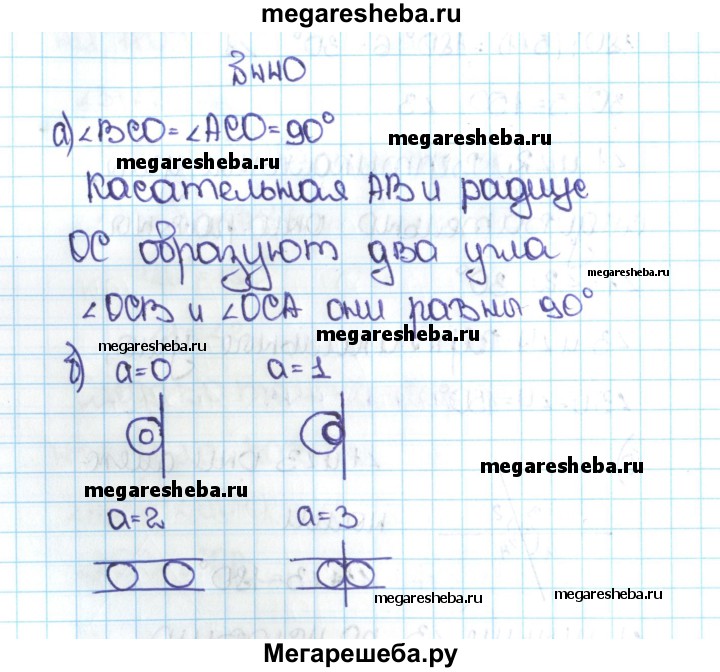 megaresheba.ru
В№440
а) ∠BCO = ∠ACO = 90°
megaresheba.ru
megaresheba.ru
Касательная AB и радиус
OC образуют два угла
megaresheba.ru
∠OCB и ∠OCA они равны 90°
megaresheba.ru
megaresheba.ru
б) a=0 a=1
megaresheba.ru
megaresheba.ru
a=2 a=3
megaresheba.ru
megaresheba.ru
Мегарешеба.ру